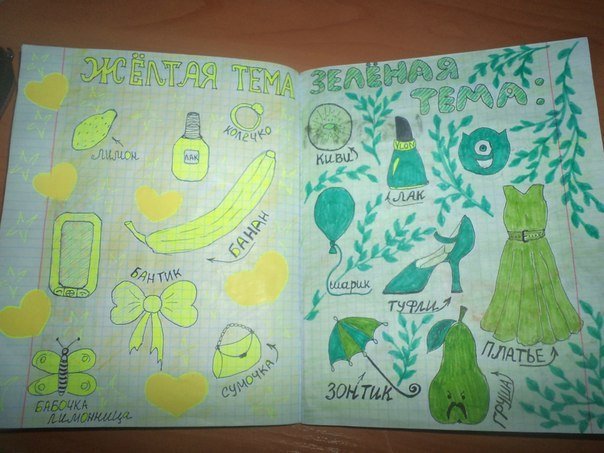 ЖЁЛТАЯ ТЕМА
КОЛЕЧКО
ЛИМОН
ЛАК
БАНАН
БАНТИК
СУМОЧКА
БАБОЧКА
ЛИМОННИЦА
ЗЕЛЁНАЯ
ТЕМА:
КИВИ
NYLON
ЛАК
шарик
ТУФЛИ
ПЛАТЬЕ
ЗОНТИК
ГРУША